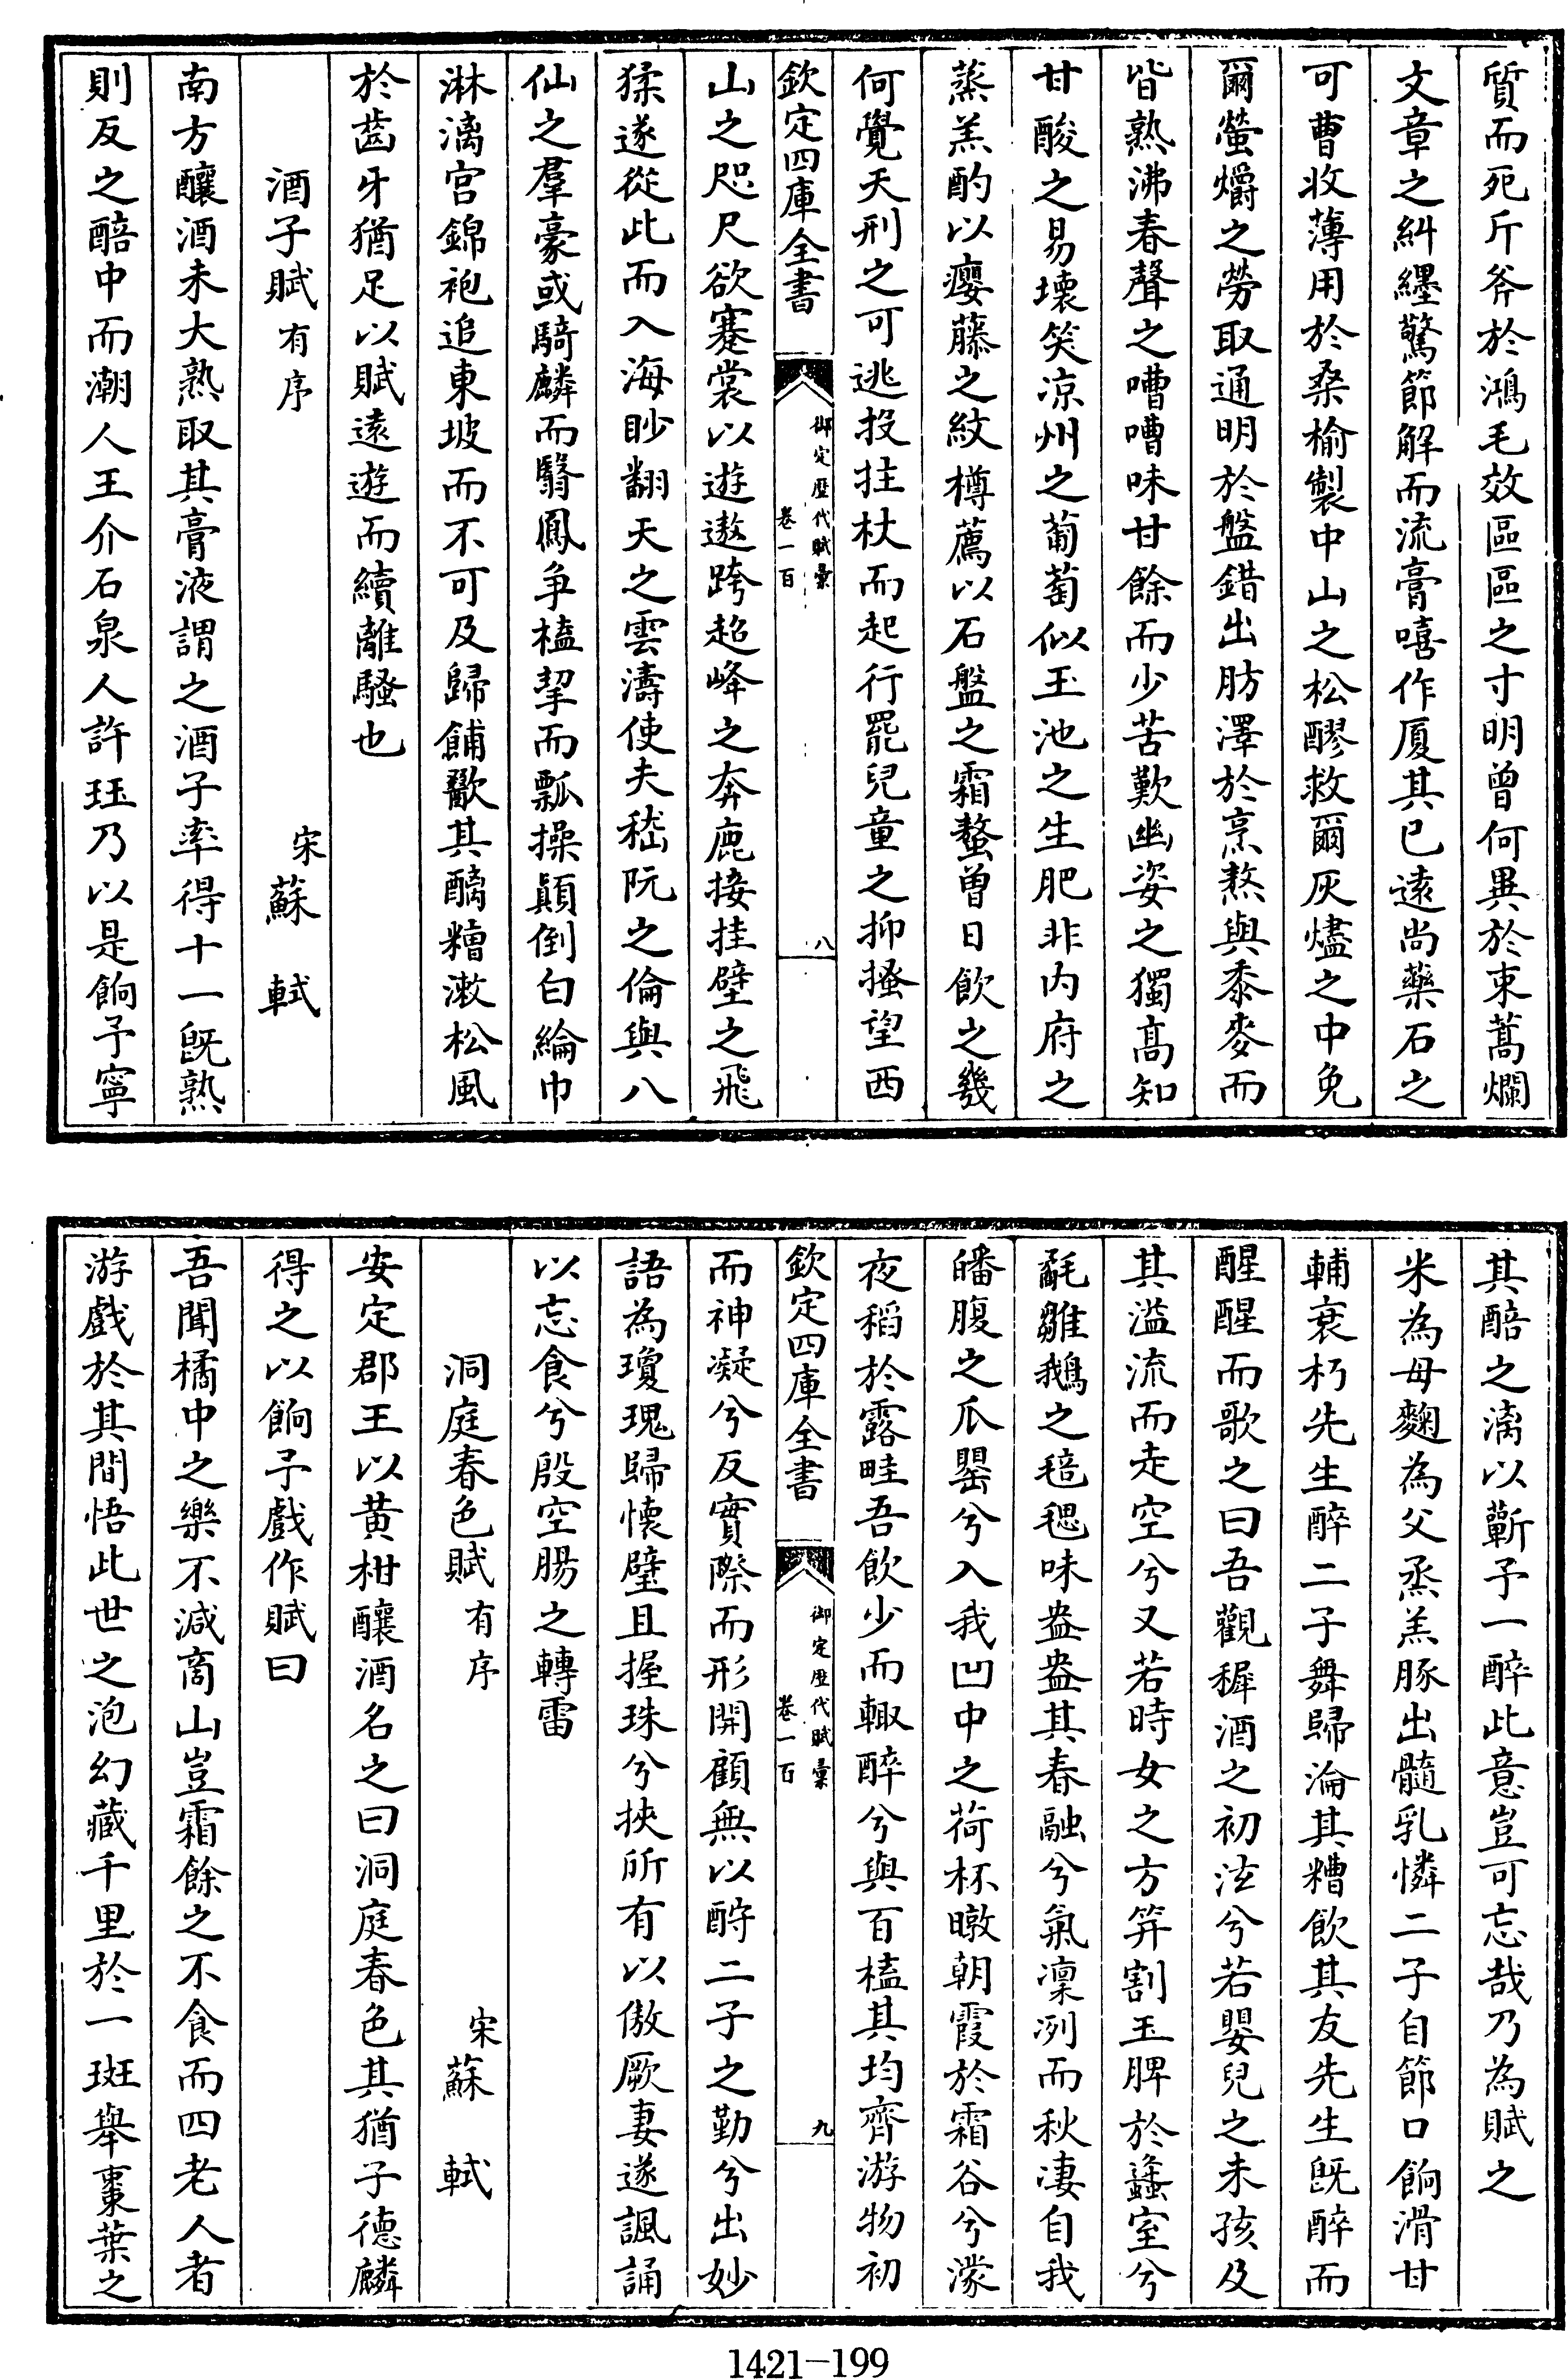 質而死斤斧於鴻毛效區區之寸明曾何異於束蒿爛
文章之糾纆驚節解而流膏嘻作厦其已遠尚藥石之
可曹收薄用於桑榆製中山之松醪救爾灰燼之中免
爾螢爝之勞取通明於盤錯出肪澤於烹熬與黍麥而
皆熟沸春聲之嘈嘈味甘餘而少苦歎幽姿之獨高知
甘酸之易壞笑凉州之葡萄似玉池之生肥非内府之
蒸羔酌以癭藤之紋樽薦以石盤之霜螯曾日飲之幾
何覺天刑之可逃投拄杖而起行罷兒童之抑搔望西
欽定四庫全書
御定歴代賦彙
卷一百
八
山之咫尺欲蹇裳以遊遨跨超峰之奔鹿接挂壁之飛
猱遂從此而入海眇翻天之雲濤使夫嵇阮之倫與八
仙之羣豪或騎麟而翳鳳争榼挈而瓢操顛倒白綸巾
淋漓宫錦袍追東坡而不可及歸餔歠其醨糟漱松風
於齒牙猶足以賦遠遊而續離騷也
酒子賦有序
宋蘇軾
南方釀酒未大熟取其膏液謂之酒子率得十一既熟
則反之醅中而潮人王介石泉人許珏乃以是餉予寧
其醅之漓以蘄予一醉此意豈可忘哉乃為賦之
米為母麴為父烝羔豚出髓乳憐二子自節口餉滑甘
輔衰朽先生醉二子舞歸瀹其糟飲其友先生既醉而
醒醒而歌之曰吾觀穉酒之初泫兮若嬰兒之未孩及
其溢流而走空兮又若時女之方笄割玉脾於蠭室兮
氄雛鵝之毰毸味盎盎其春融兮氣凜冽而秋凄自我
皤腹之瓜罌兮入我凹中之荷杯暾朝霞於霜谷兮濛
夜稻於露畦吾飲少而輙醉兮與百榼其均齊游物初
欽定四庫全書
御定歴代賦彙
卷一百
九
而神凝兮反實際而形開顧無以酧二子之勤兮出妙
語為瓊瑰歸懷璧且握珠兮挾所有以傲厥妻遂諷誦
以忘食兮殷空腸之轉雷
洞庭春色賦有序
宋蘇軾
安定郡王以黄柑釀酒名之曰洞庭春色其猶子德麟
得之以餉予戲作賦曰
吾聞橘中之樂不減商山豈霜餘之不食而四老人者
游戲於其間悟此世之泡幻藏千里於一斑舉棗葉之
1421-199